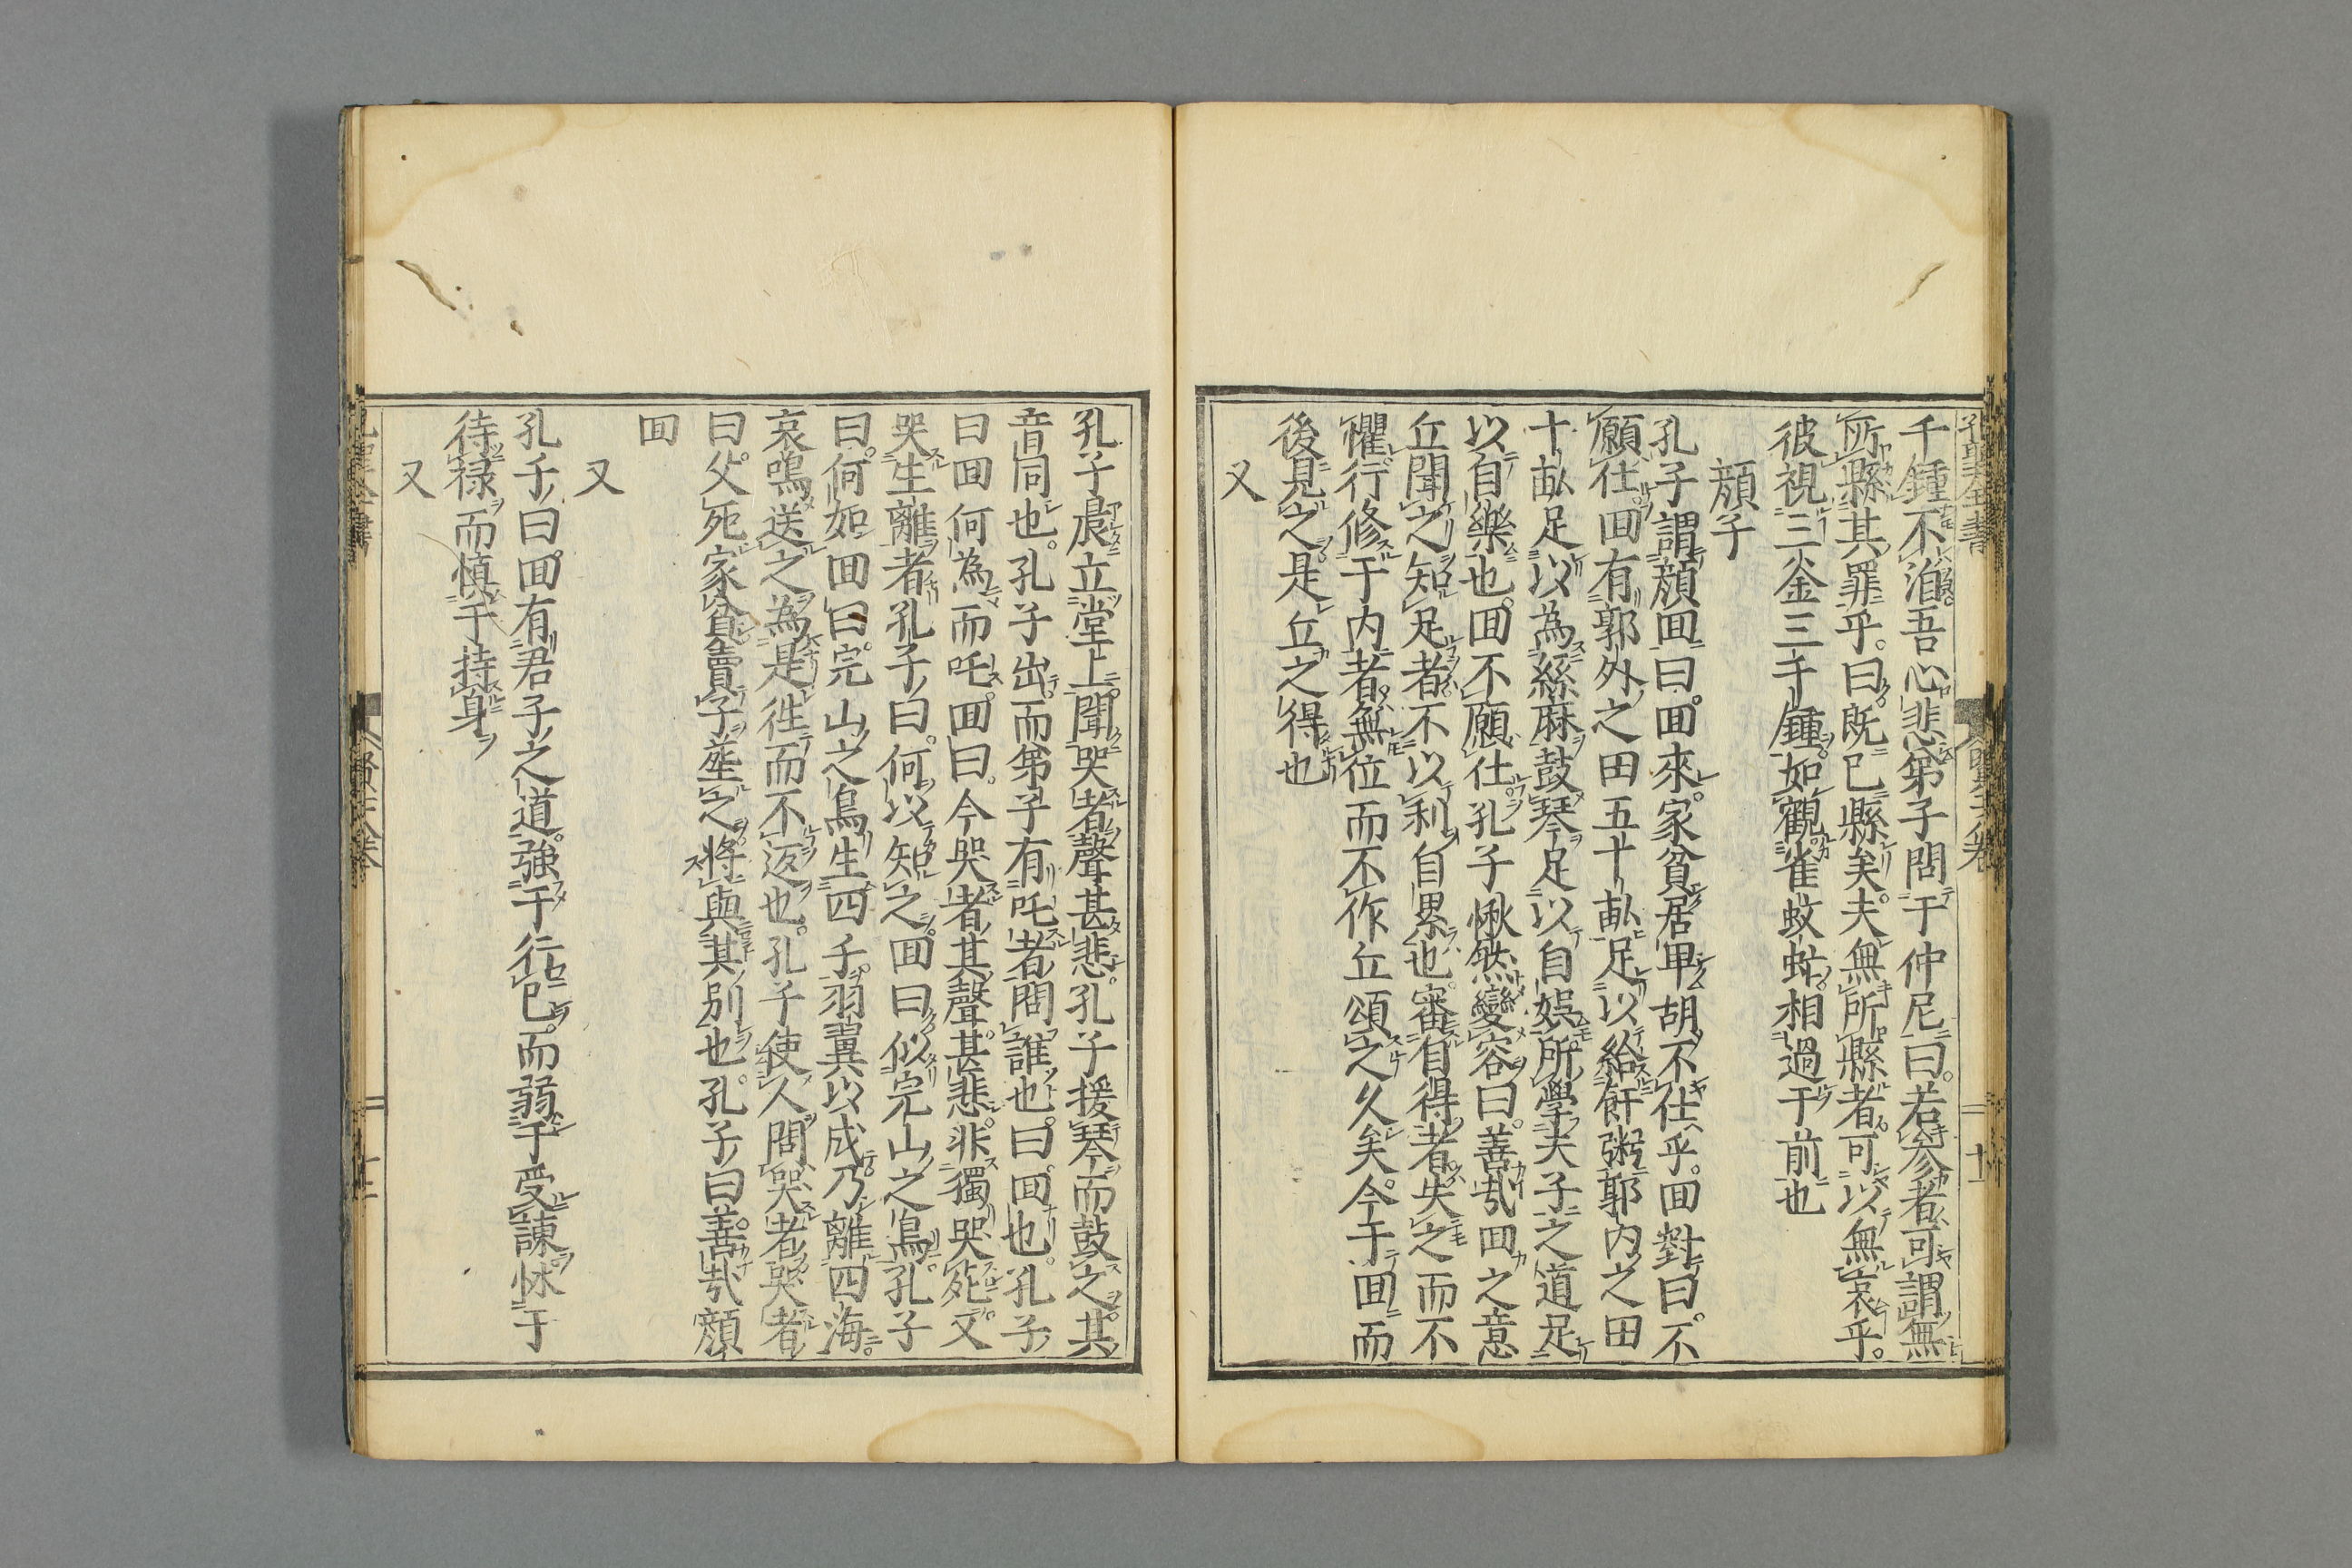 千鍾不洎吾心悲第子問于仲尼曰若參者可謂無
所縣其罪乎曰既已縣矣夫無所縣者可以無哀乎
彼視三釜三千鍾如觀雀蚊虻相過于前也
顏子
孔子謂顏囬曰囬來家貧居卑胡不仕乎囬對曰不
願仕囬有郭外之田五十畝足以給飦粥郭內之田
十畝足以為絲麻鼓琴足以自娛所學夫子之道足
以自樂也囬不願仕孔子愀然變容曰善哉囬之意
丘聞之知足者不以利自累也審自得者失之而不
懼行修于內者無位而不作丘頌之久矣今于囬而
後見之是丘之得也
又
孔子晨立堂上聞哭者聲甚悲孔子援琴而鼓之其
音同也孔子出而第子有吒者問誰也曰囬也孔子
曰囬何為而吒囬曰今哭者其聲甚悲非獨哭死又
哭生離者孔子曰何以知之囬曰似完山之鳥孔子
曰何如囬曰完山之鳥生四子羽翼以成乃離四海
哀鳴送之為是徃而不返也孔子使人問哭者哭者
曰父死家貧賣子塟之將與其別也孔子曰善哉顏
囬
又
孔子曰囬有君子之道強于行已而弱于受諫怵于
待禄而慎于持身
又